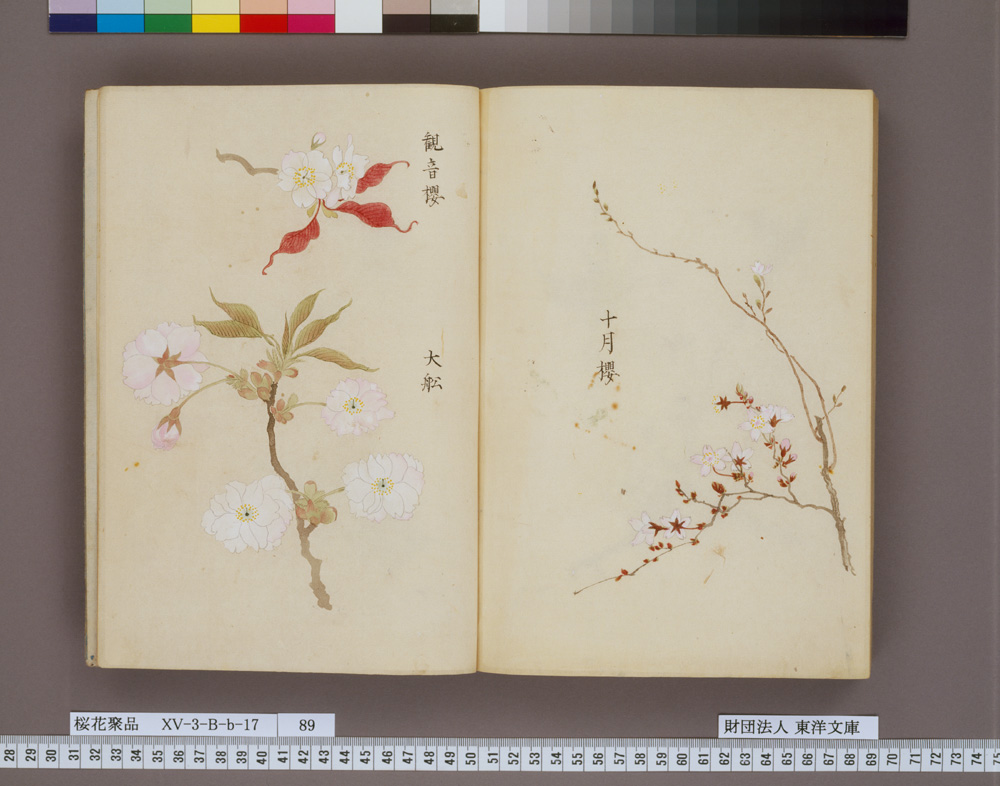 十月櫻
観音櫻
大舩
桜花聚品 XV-3-B-b-17 89
財団法人 東洋文庫
28 29 30 31 32 33 34 35 36 37 38 39 40 41 42 43 44 45 46 47 48 49 50 51 52 53 54 55 56 57 58 59 60 61 62 63 64 65 66 67 68 69 70 71 72 73 74 75